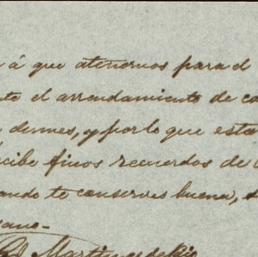 á que atenernos para d
te el arrendamiento de ca
dinnes, y por lo que esta
cibe finos recuerdos de
ando te conserves buena, s
mano-
Martinez del Rio